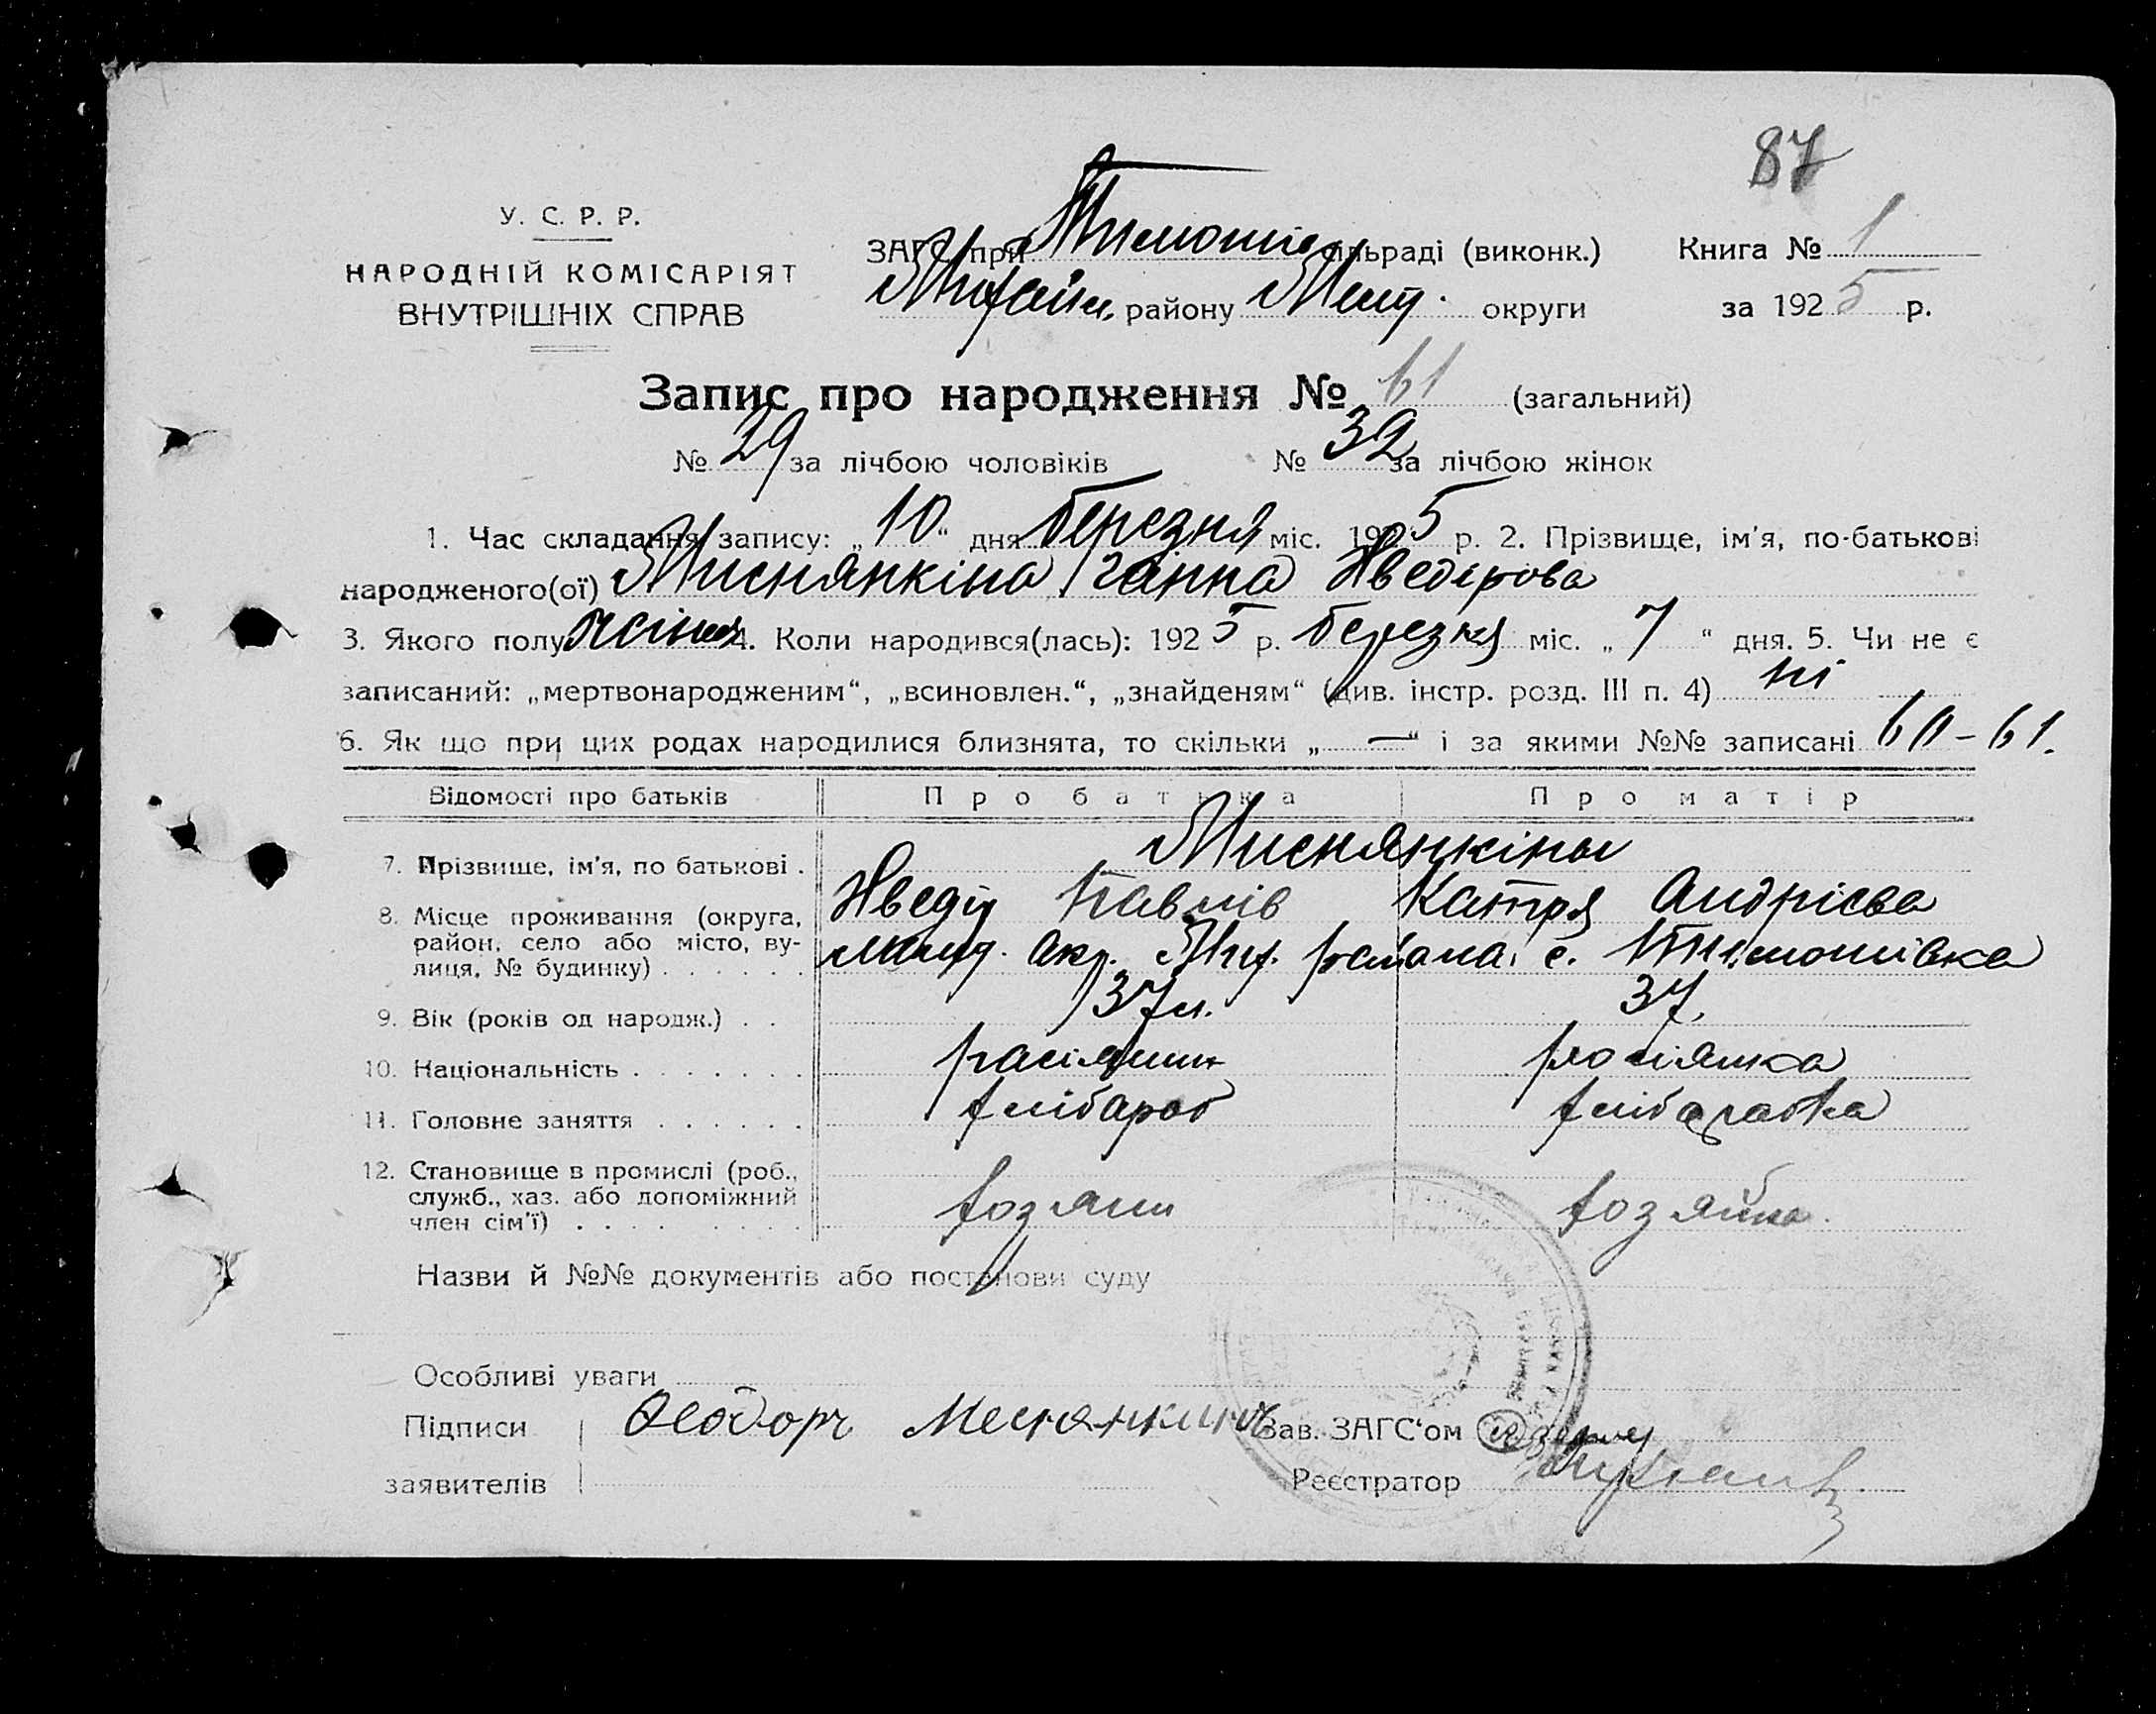 87
У. С. Р. Р.
НАРОДНІЙ КОМІСАРІЯТ
ВНУТРІШНІХ СПРАВ
ЗАГС при Тимошів сільраді (виконк.)
Михайл. району Меліт. округи
Книга № 1
за 1925 р.
Запис про народження № 61 (загальний)
№ 29 за лічбою чоловіків № 32 за лічбою жінок
1. Час складання запису: „10“ дня березня міс. 1925 р. 2. Прізвище, ім'я, по-батькові
народженого(ої) Миснянкіна Ганна Хведірова
3. Якого полу жіноч 4. Коли народився(лась): 1925 р. березня міс. „7“ дня. 5. Чи не є
записаний: „мертвонародженим“, „всиновлен.“, „знайденям“ (див. інстр. розд. III п. 4) ні
6. Як що при цих родах народилися близнята, то скільки „—“ і за якими №№ записані 60-61.
Відомості про батьків Про батька Про матір
Миснянкіны
7. Прізвище, ім'я, по батькові . Хведір Павлів Катря Андрієва
8. Місце проживання (округа,
район, село або місто, ву-
лиця, № будинку) . . . . . . Окр. Мих. району с. Тимошівка
9. Вік (років од народж.) . . 37 л. 37.
10. Національність . . . . . . . расіянин росіянка
11. Головне заняття . . . . . . хлібароб хлібаробка
12. Становище в промислі (роб.,
служб., хаз. або допоміжний
член сім'ї) . . . . . . . . . хозяин хозяйка.
Назви й №№ документів або постанови суду
Особливі уваги
Підписи Феодоръ Меснянкинъ Зав. ЗАГС'ом
заявителів Реєстратор